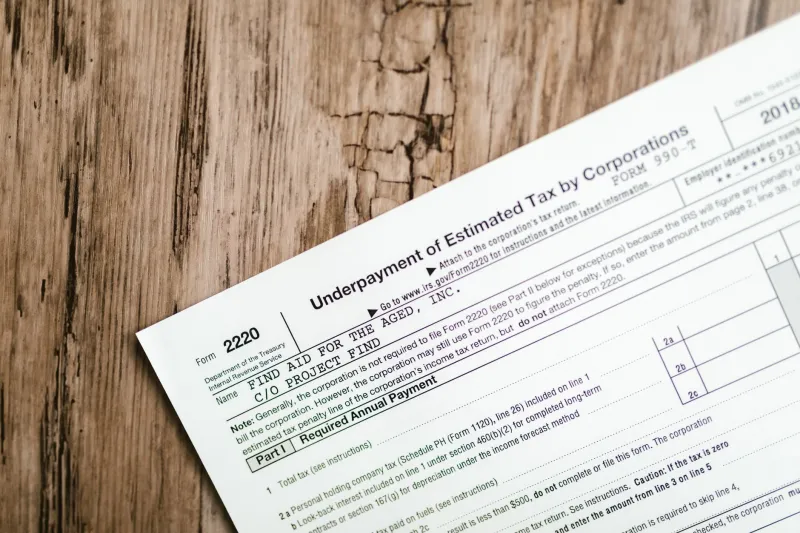 Form 2220
Department of the Treasury
Internal Revenue Service
Underpayment of Estimated Tax by Corporations
▶ Attach to the corporation's tax return. FORM 990-T
▶ Go to www.irs.gov/Form2220 for instructions and the latest information.
2018
Name
FIND AID FOR THE AGED, INC.
C/O PROJECT FIND
Employer identification
**-***6921
Note: Generally, the corporation is not required to file Form 2220 (see Part II below for exceptions) because the IRS will figure any penalty
bill the corporation. However, the corporation may still use Form 2220 to figure the penalty. If so, enter the amount from page 2, line 38, on
estimated tax penalty line of the corporation's income tax return, but do not attach Form 2220.
Part I Required Annual Payment
1 Total tax (see instructions)
1
2a Personal holding company tax (Schedule PH (Form 1120), line 26) included on line 1
2a
b Look-back interest included on line 1 under section 460(b)(2) for completed long-term
contracts or section 167(g) for depreciation under the income forecast method
2b
tax paid on fuels (see instructions)
2c
2c
result is less than $500, do not complete or file this form. The corporation
me tax return. See instructions. Caution: If the tax is zero
and enter the amount from line 3 on line 5
ration is required to skip line 4,
checked, the corporation